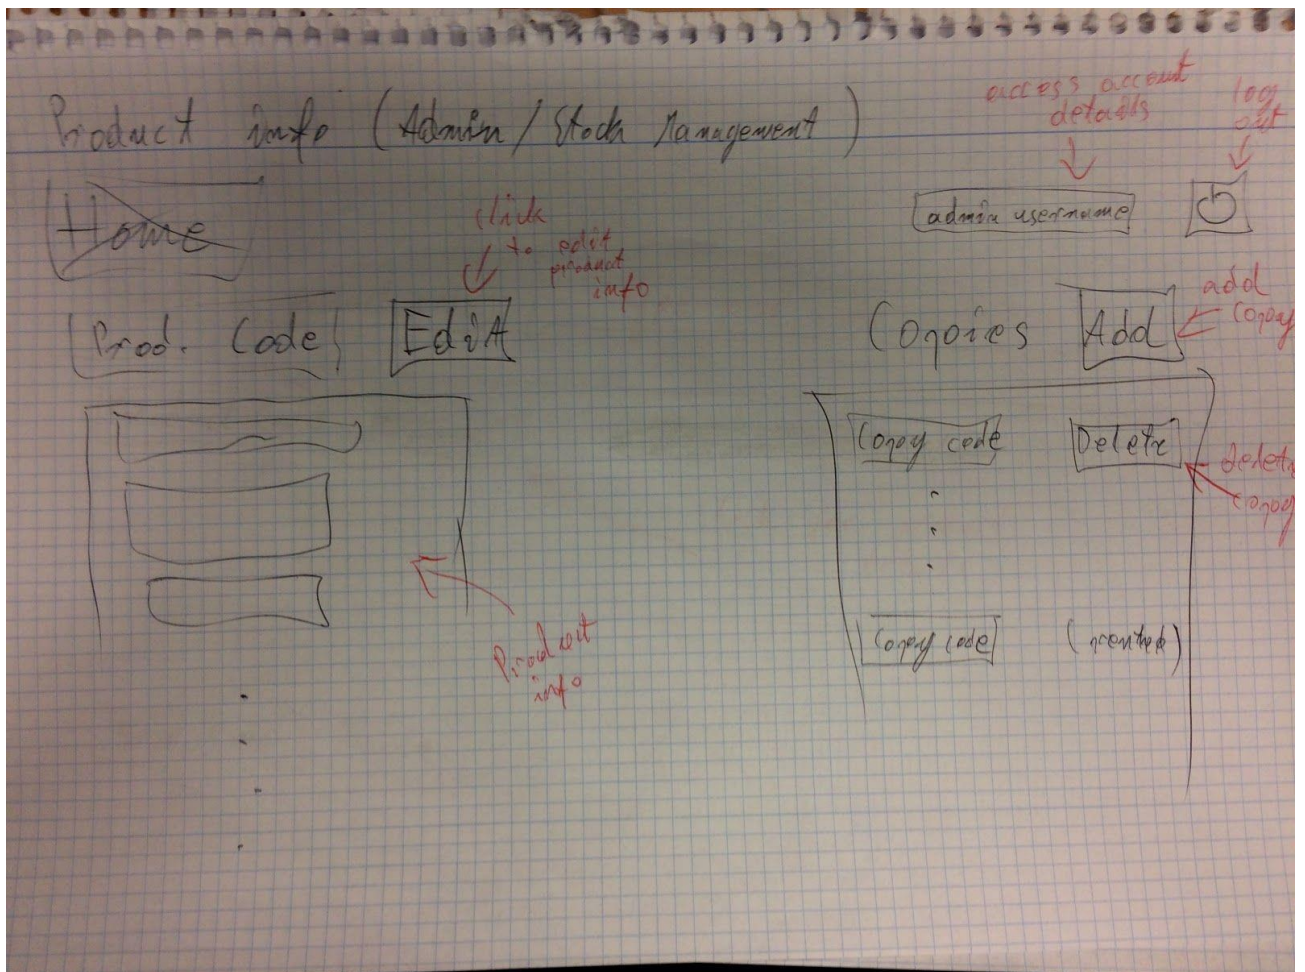 Product info (Admin / Stock Management)
access account
details
log
out
Home
admin username
click
to edit
product
info
Prod. Code
Edit
Copies
Add
add
copy
Copy code
Delete
delete
copy
Copy code
(rented)
Product
info